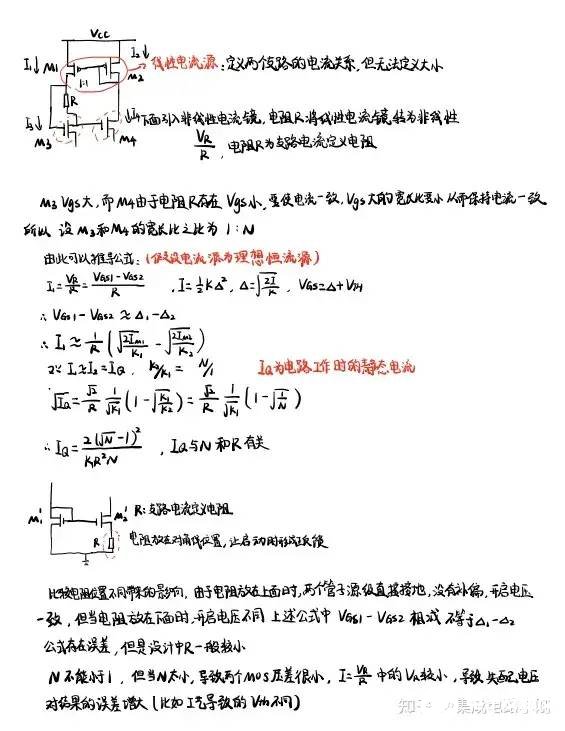 Vcc
I₁↓ I₂↓
M₁ M₂ 1:1
线性电流源:定义两个支路的电流关系,但无法定义大小
R
I₃↓ I₄↓
M₃ M₄
下面引入非线性电流镜,电阻R将线性电流镜转为非线性
V_R/R,电阻R为支路电流定义电阻
M₃ Vgs大,而M₄由于电阻R存在 Vgs小,要使电流一致,Vgs大的宽长比要小从而保持电流一致
所以 设M₃和M₄的宽长比之比为 1:N
由此可以推导公式:(假设电流源为理想恒流源)
I₁=V_R/R=(V_GS1-V_GS2)/R ,I=½KΔ²,Δ=√(2I/K),V_GS=Δ+V_TH
∴ V_GS1-V_GS2≈Δ₁-Δ₂
∴ I₁≈1/R(√(2I_M1/K₁)-√(2I_M2/K₂))
又∵ I₁≈I₂=I_Q,K₂/K₁=N/1 I_Q为电路工作时的静态电流
√I_Q=√2/R 1/√K₁(1-√(K₁/K₂))=√2/R 1/√K₁(1-√(1/N))
∴ I_Q=2(√N-1)²/(K₁R²N),I_Q与N和R有关
M₁' M₂' R:支路电流定义电阻
R 电阻放在对角线位置,让启动时形成正反馈
比较电阻位置不同带来的影响,由于电阻放在上面时,两个管子源级直接接地,没有衬偏,开启电压
一致,但当电阻放在下面时,开启电压不同 上述公式中V_GS1-V_GS2 相减 不等于Δ₁-Δ₂
公式存在误差,但是设计中R一般较小
N不能小于1,但当N太小,导致两个MOS压差很小,I=V_R/R中的V_R较小,导致失配电压
对结果的误差增大(比如工艺导致的Vth不同)